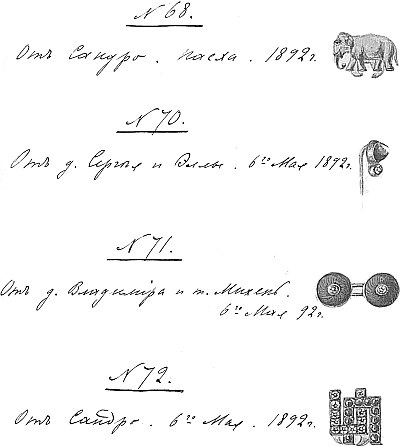 N 68.
Отъ Сандро. Пасха. 1892г.
N 70.
Отъ д. Сергѣя и Эллы. 6го Мая 1892г.
N 71.
Отъ д. Владиміра и т. Михень.
6го Мая 92г.
N 72.
Отъ Сандро. 6го Мая. 1892г.